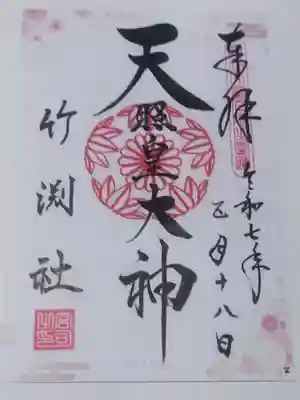 奉拝
令和七年
五月十八日
天照皇大神
竹渕社